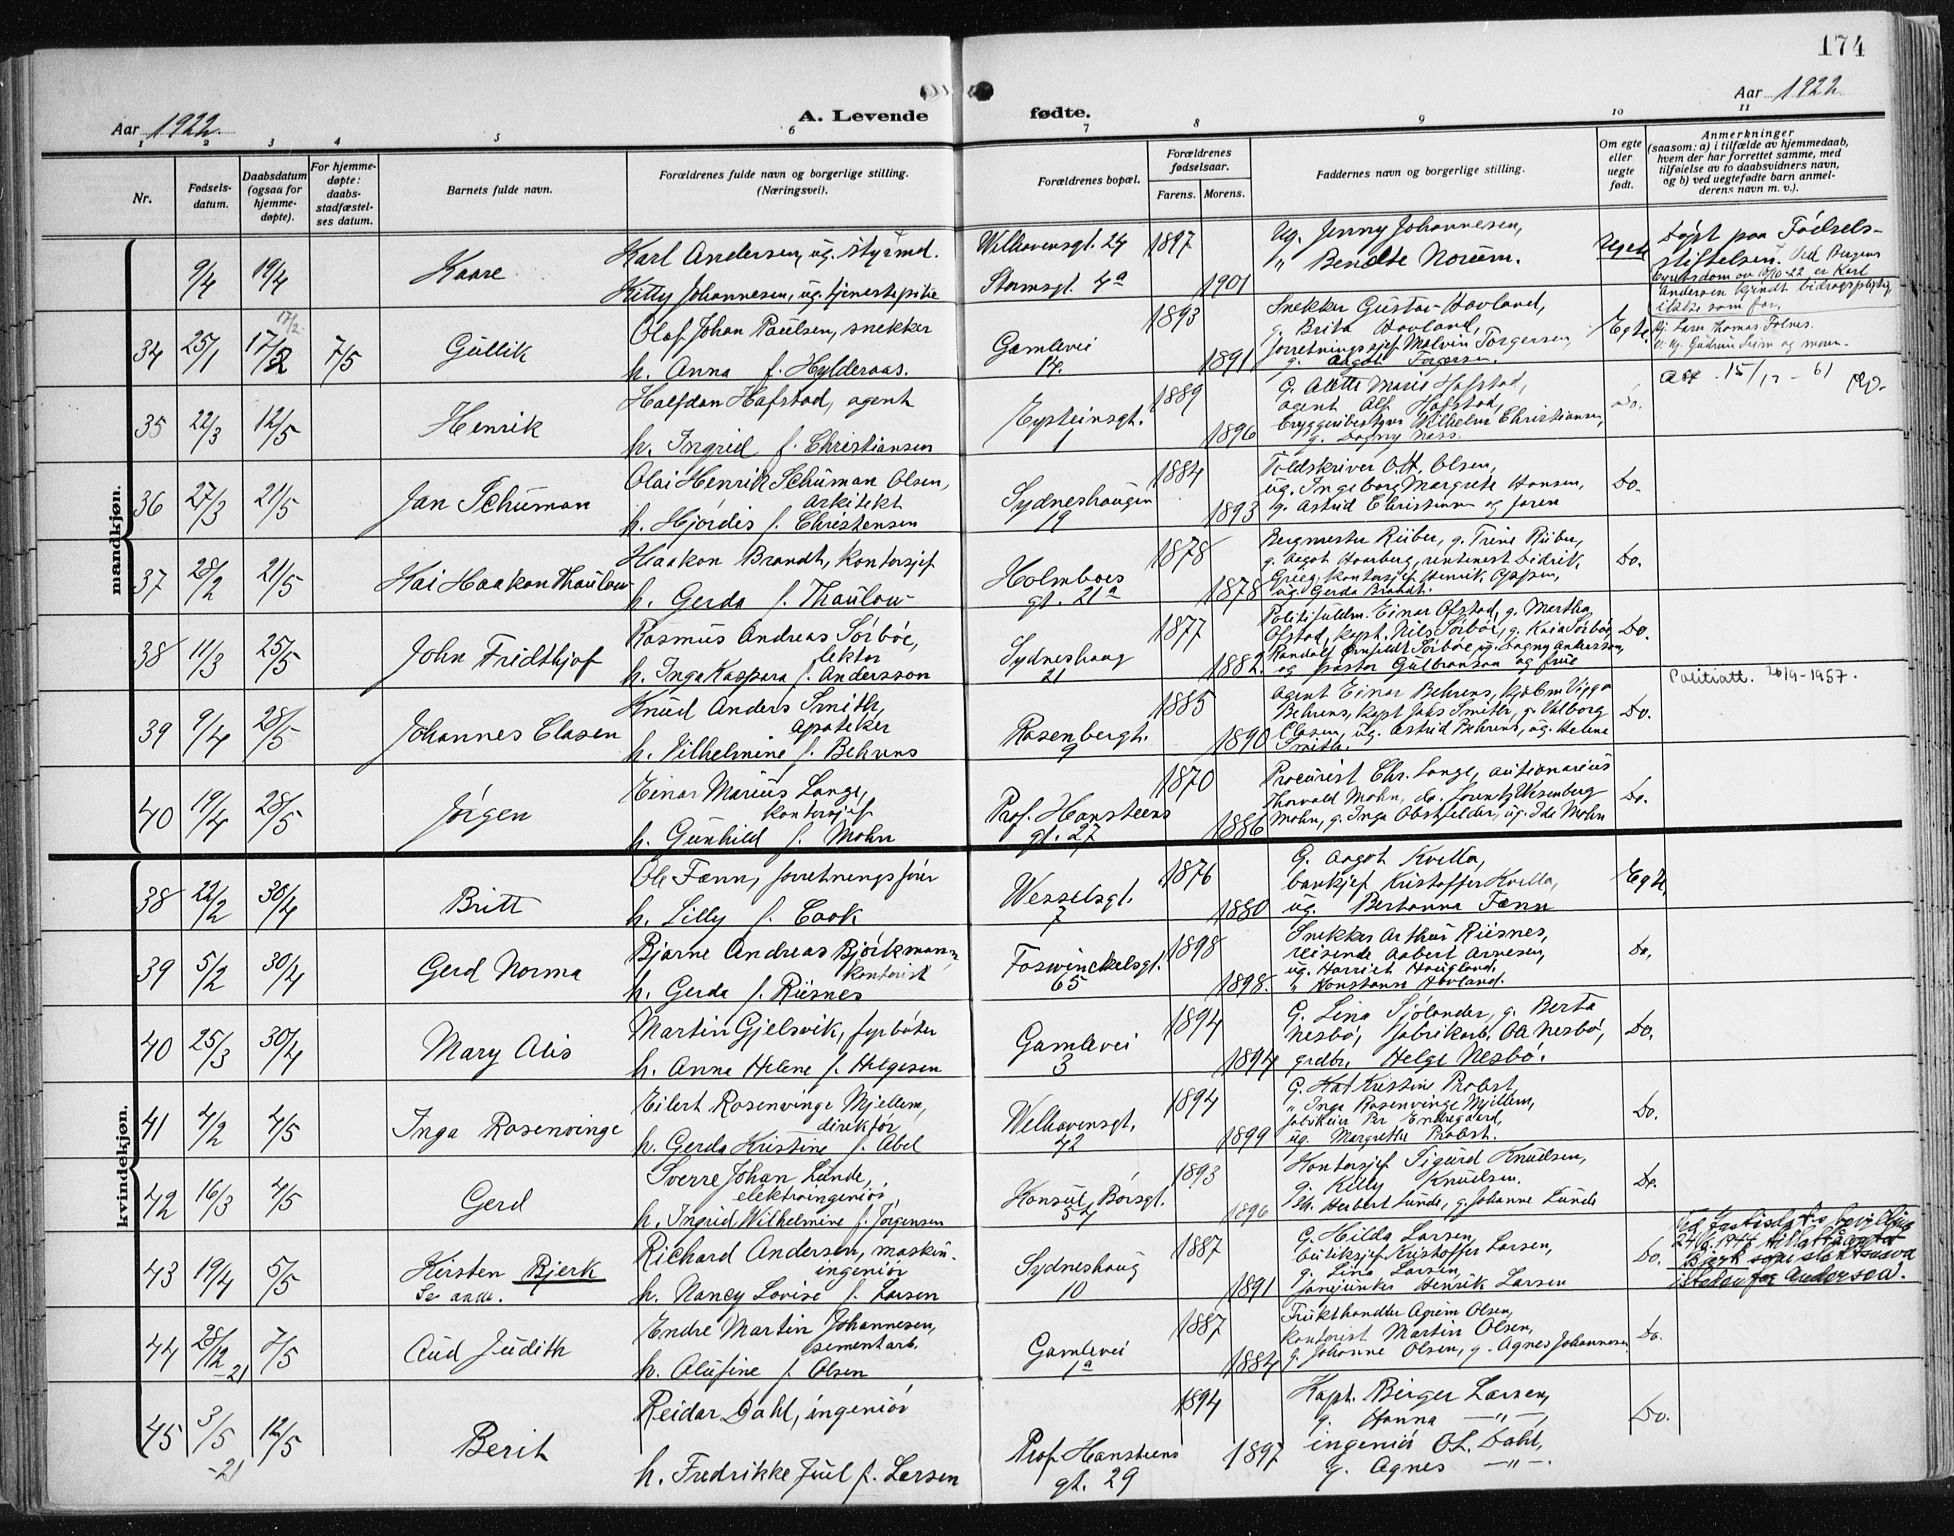 174
Aar 1922.
A. Levende fødte.
Aar 1922
1 2 3 4 5 6 7 8 9 10 11
Nr.
Fødsels-
datum.
Daabsdatum
(ogsaa for
hjemme-
døpte).
For hjemme-
døpte:
daabs-
stadfæstel-
ses datum.
Barnets fulde navn.
Forældrenes fulde navn og borgerlige stilling.
(Næringsvei).
Forældrenes bopæl.
Forældrenes
fødselsaar.
Farens. Morens.
Faddernes navn og borgerlige stilling.
Om egte
eller
uegte
født.
Anmerkninger
(saasom: a) i tilfælde av hjemmedaab,
hvem der har forrettet samme, med
tilføielse av to daabsvidners navn,
og b) ved uegtefødte barn anmel-
derens navn m. v.).
mandkjøn.
9/4 19/4 Kaare
Karl Andersen, ug. styrmd.
Kitty Johannesen, ug. tjenestepike
Welhavensgt. 24 1897
Stormsgt. 4a 1901
Ug. Jenny Johannesen,
" Bendte Norum.
Uegte
Døpt paa Fødsels-
stiftelsen. Ved Bergens
Byretsdom av 10/10-22 er Karl
Andersen kjendt bidragspligtig
ikke som far.
34 25/1 17/2 17/2 7/5 Gullik
Olaf Johan Paulsen, snekker
h. Anna f. Hylderaas.
Gamlevei
14.
1893
1891
Snekker Gustav Hovland,
g. Brita Hovland,
forretningssjef Malvin Torgersen,
g. Aagot Torgersen.
Egte.
35 22/3 12/5 Henrik
Halfdan Hafstad, agent
h. Ingrid f. Christiansen
Eysteinsgt.
1
1889
1896
G. Alette Marie Hafstad,
agent Alf Hafstad,
bryggeribestyrer Wilhelm Christiansen,
g. Dagny Næss.
Do.
Att. 15/12 - 61
36 27/3 21/5 Jan Schuman
Olai Henrik Schuman Olsen,
arkitekt
h. Hjørdis f. Christensen
Sydneshaugen
19
1884
1893
Toldskriver O.H. Olsen,
ug. Ingeborg Margrete Hansen,
ug. Astrid Christensen og faren
Do.
37 28/2 21/5 Kai Haakon Thaulow
Haakon Brandt, kontorsjef
h. Gerda f. Thaulow
Holmboes
gt. 21a
1878
1878
Bergmester Riiber, g. Trine Riiber,
g. Aagot Haarberg, rentenist Didrik
Grieg, kontorsjef Henrik Appen,
ug. Gerda Brandt.
Do.
38 11/3 25/5 John Fridthjof
Rasmus Andreas Sørbøe,
lektor
h. Inga Kaspara f. Andersson
Sydneshaug
21
1877
1882.
Politifuldm. Einar Ofstad, g. Martha
Ofstad, kapt. Nils Sørbøe, g. Kaia Sørbøe,
Randolf Arnfeldt Sørbøe, ug. Dagny Andersson,
og pastor Gulbranson og frue
Do.
Politiatt. 20/9-1957.
39 9/4 28/5 Johannes Clasen
Knud Anders Smith,
apoteker
h. Vilhelmine f. Behrens
Rosenbergt.
9
1885
1890
Agent Einar Behrens, kjøbm. Viggo
Behrens, kapt. Jahs Smith, g. Valborg
Clasen, ug. Astrid Behrens, ug. Helene
Smith.
Do.
40 19/4 28/5 Jørgen
Einar Marius Lange,
kontorsjef
h. Gunhild f. Mohn
Prof. Hansteens
gt. 27
1870
1886
Procurist Chr. Lange, auktionarius
Thorvald Mohn, do. Lorentz Wesenberg
Mohn, g. Inga Obstfelder, ug. Ida Mohn
Do.
kvindekjøn.
38 22/2 30/4 Britt
Ole Fænn, forretningsfører
h. Lilly f. Cook
Wesselsgt.
7
1876
1880
G. Aagot Kvilla,
banksjef Kristoffer Kvilla,
ug. Bertanna Fænn
Egte
39 5/2 30/4 Gerd Norma
Bjarne Andreas Bjørkmann,
kontorist
h. Gerda f. Risnes
Foswinckelsgt.
65
1898
1898.
Snekker Arthur Risnes,
reisende Aabert Arnesen,
ug. Harriet Haugland,
" Konstanse Hovland.
Do.
40 25/3 30/4 Mary Alis
Martin Gjelsvik, fyrbøter
h. Anna Helene f. Helgesen
Gamlevei
3
1894
1894
G. Lina Sjølander, g. Berta
Nesbø, fabrikarb. Ole Nesbø,
grdbr. Helge Nesbø.
Do.
41 4/2 4/5 Inga Rosenvinge
Eilert Rosenvinge Mjellem,
direktør
h. Gerda Kristine f. Abel
Welhavensgt.
42
1894
1899
G. Kat Kristine Probst,
" Inga Rosenvinge Mjellem,
ug. Margrethe Probst.
Do.
42 16/3 4/5 Gerd
Sverre Johan Lunde,
elektroingeniør,
h. Ingrid Wilhelmine f. Jørgensen
Konsul Børsgt.
54
1893
1896
Kontorsjef Sigurd Knudsen,
g. Kitty Knudsen,
Herbert Lunde, g. Johanne Lunde
Do.
43 19/4 5/5 Kirsten Bjerk
Se anm.
Richard Andersen, maskin-
ingeniør
h. Nancy Lovise f. Larsen
Sydneshaug
10
1887
1891
G. Hilda Larsen,
butiksjef Kristoffer Larsen,
g. Lina Larsen,
fanejunker Henrik Larsen
Do.
44 28/12-21 7/5 Aud Judith
Endre Martin Johannesen,
sementarb.
h. Olufine f. Olsen
Gamlevei
1a
1887
1884
Frukthandler Agrim Olsen,
kontorist Martin Olsen,
g. Johanne Olsen, g. Agnes Johannesen
Do.
45 3/5-21 12/5 Berit
Reidar Dahl, ingeniør
h. Fredrikke Juul f. Larsen
Prof. Hansteens
gt. 29
1894
1897
Kapt. Birger Larsen,
g. Hanna —"—,
ingeniør O. Dahl,
g. Agnes —"—.
Do.